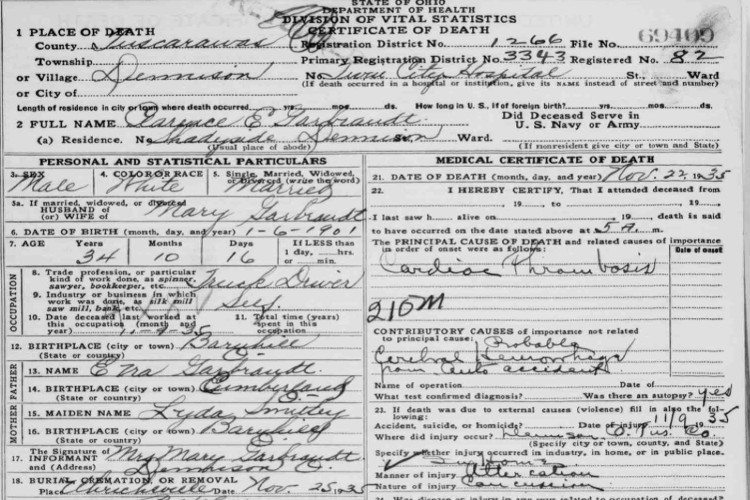 STATE OF OHIO
DEPARTMENT OF HEALTH
DIVISION OF VITAL STATISTICS
CERTIFICATE OF DEATH
1 PLACE OF DEATH
County Tuscarawas
Registration District No. 1266 File No. 69409
Township
Primary Registration District No. 3343 Registered No. 82
or Village Dennison
No. Twin City Hospital St., Ward
or City of
(If death occurred in a hospital or institution, give its NAME instead of street and number)
Length of residence in city or town where death occurred yrs. mos. ds. How long in U. S., if of foreign birth? yrs. mos. ds.
2 FULL NAME Clarence E. Garbrandt
Did Deceased Serve in
U. S. Navy or Army
(a) Residence. No. Shadyside Dennison Ward.
(Usual place of abode) (If nonresident give city or town and State)
PERSONAL AND STATISTICAL PARTICULARS
3. SEX 4. COLOR OR RACE 5. Single, Married, Widowed,
or Divorced (write the word)
Male White Married
5a. If married, widowed, or divorced
HUSBAND of
(or) WIFE of Mary Garbrandt
6. DATE OF BIRTH (month, day, and year) 1-6-1901
7. AGE Years Months Days If LESS than
1 day, hrs.
or min.
34 10 16
OCCUPATION
8. Trade, profession, or particular
kind of work done, as spinner,
sawyer, bookkeeper, etc. Truck Driver
9. Industry or business in which
work was done, as silk mill
saw mill, bank, etc. Self
10. Date deceased last worked at
this occupation (month and
year) 11-9-35
11. Total time (years)
spent in this
occupation
12. BIRTHPLACE (city or town) Barnhill
(State or country) O.
FATHER
13. NAME Ezra Garbrandt
14. BIRTHPLACE (city or town) Cumberland
(State or country)
MOTHER
15. MAIDEN NAME Lyda Smitley
16. BIRTHPLACE (city or town) Barnhill
(State or country) O.
The Signature of
17. INFORMANT Mrs Mary Garbrandt
and (Address) Dennison O.
18. BURIAL, CREMATION, OR REMOVAL
Place Uhrichsville Date Nov. 25 1935
MEDICAL CERTIFICATE OF DEATH
21. DATE OF DEATH (month, day, and year) Nov. 22 1935
22. I HEREBY CERTIFY, That I attended deceased from
, 19 , to , 19
I last saw h alive on , 19 , death is said
to have occurred on the date stated above at 5 A. m.
The PRINCIPAL CAUSE OF DEATH and related causes of importance
in order of onset were as follows: Date of onset
Cardiac Thrombosis
210M
CONTRIBUTORY CAUSES of importance not related
to principal cause: Probable
Cerebral Hemorrhage
from auto accident
Name of operation Date of
What test confirmed diagnosis? Was there an autopsy? yes
23. If death was due to external causes (violence) fill in also the fol-
lowing:
Accident, suicide, or homicide? Date of injury 11/9 1935
Where did injury occur? Dennison O. Tus. Co.
(Specify city or town, county, and State)
Specify whether injury occurred in industry, in home, or in public place.
Manner of injury
Nature of injury